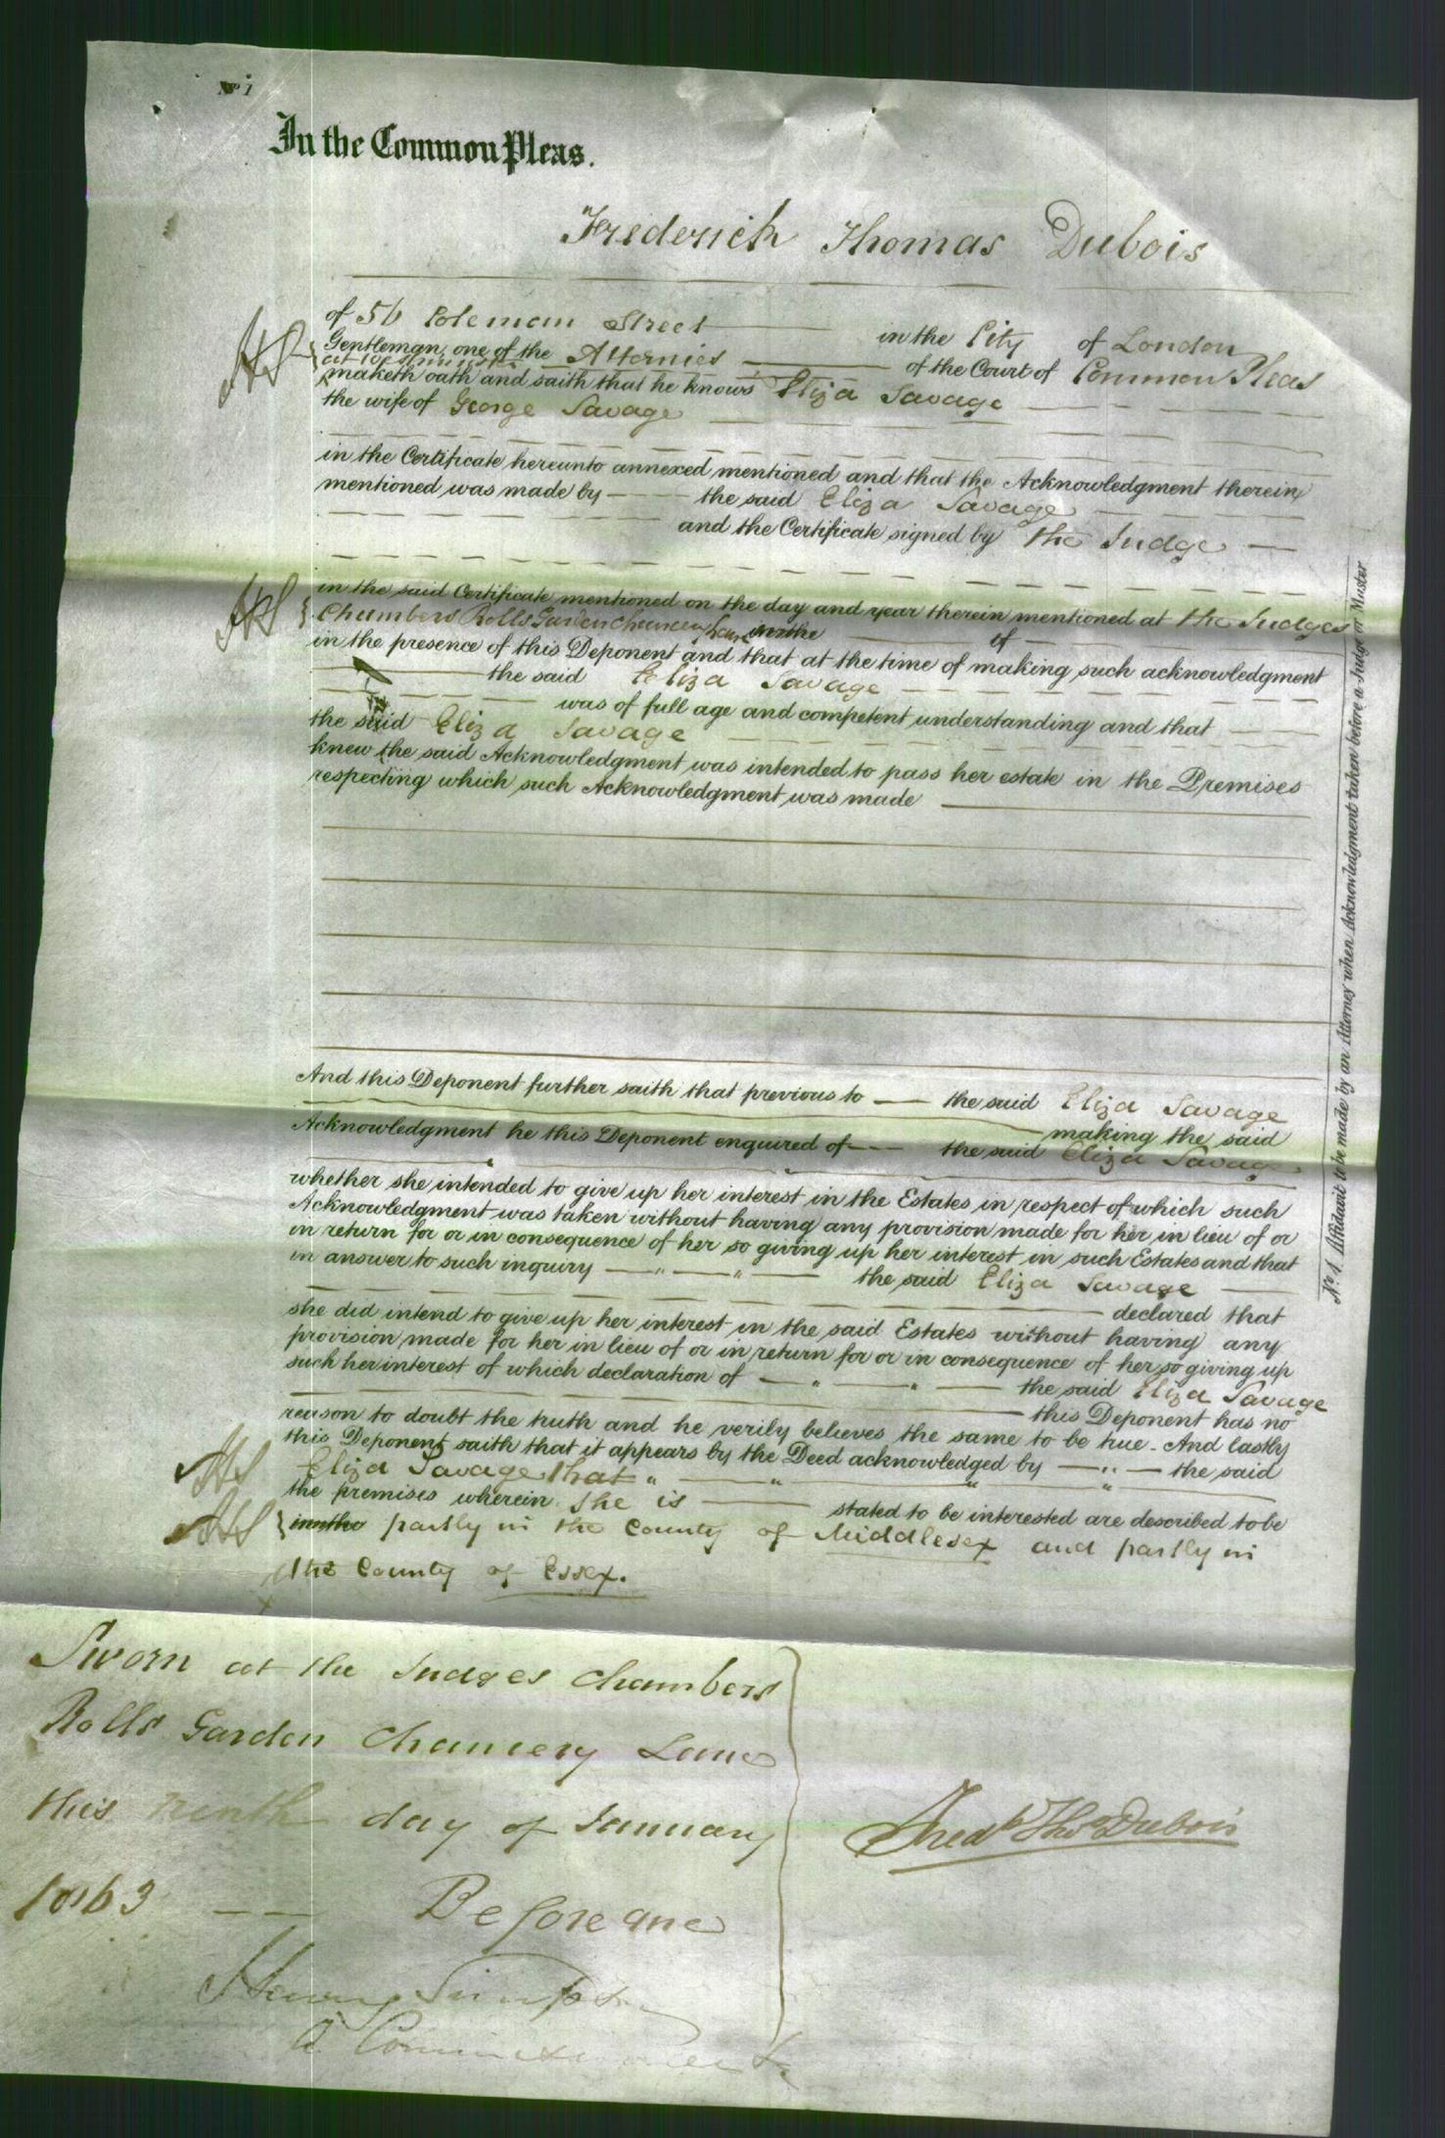 No 1
In the Common Pleas.
Frederick Thomas Dubois
of 56 Coleman Street in the City of London
Gentleman, one of the Attornies of the Court of Common Pleas
at Westminster
maketh oath and saith that he knows Eliza Savage
the wife of George Savage
in the Certificate hereunto annexed mentioned and that the Acknowledgment therein
mentioned was made by the said Eliza Savage
and the Certificate signed by the Judge
in the said Certificate mentioned on the day and year therein mentioned at the Judges
Chambers Rolls Garden Chancery Lane in the of
in the presence of this Deponent and that at the time of making such acknowledgment
the said Eliza Savage
was of full age and competent understanding and that
the said Eliza Savage
knew the said Acknowledgment was intended to pass her estate in the Premises
respecting which such Acknowledgment was made
And this Deponent further saith that previous to the said Eliza Savage
making the said
Acknowledgment he this Deponent enquired of the said Eliza Savage
whether she intended to give up her interest in the Estates in respect of which such
Acknowledgment was taken without having any provision made for her in lieu of or
in return for or in consequence of her so giving up her interest in such Estates and that
in answer to such inquiry the said Eliza Savage
declared that
she did intend to give up her interest in the said Estates without having any
provision made for her in lieu of or in return for or in consequence of her so giving up
such her interest of which declaration of the said Eliza Savage
this Deponent has no
reason to doubt the truth and he verily believes the same to be true. And lastly
this Deponent saith that it appears by the Deed acknowledged by the said
Eliza Savage that
the premises wherein she is stated to be interested are described to be
in the partly in the County of Middlesex and partly in
the County of Essex.
Sworn at the Judges Chambers
Rolls Garden Chancery Lane
this ninth day of January
1863 Before me
Henry Simpson
A Commissioner &c
Fredk Thos Dubois
No 1 Affidavit to be made by an Attorney when Acknowledgment taken before a Judge or Master